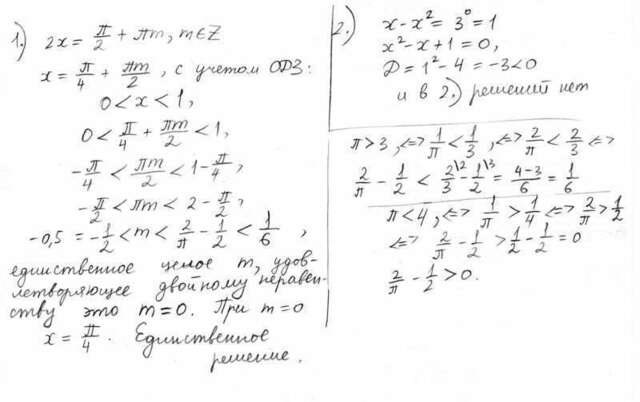 1.) 2x = π/2 + πm, m∈Z
x = π/4 + πm/2, с учетом ОДЗ:
0 < x < 1,
0 < π/4 + πm/2 < 1,
-π/4 < πm/2 < 1 - π/4,
-π/2 < πm < 2 - π/2,
-0,5 = -1/2 < m < 2/π - 1/2 < 1/6,
единственное целое m, удов-
летворяющее двойному неравен-
ству это m = 0. При m = 0
x = π/4. Единственное
решение.
2.) x - x² = 3⁰ = 1
x² - x + 1 = 0,
D = 1² - 4 = -3 < 0
и в 2.) решений нет
π > 3, <=> 1/π < 1/3, <=> 2/π < 2/3 <=>
2/π - 1/2 < 2/3\2 - 1/2\3 = 4-3/6 = 1/6
π < 4, <=> 1/π > 1/4 <=> 2/π > 1/2
<=> 2/π - 1/2 > 1/2 - 1/2 = 0
2/π - 1/2 > 0.